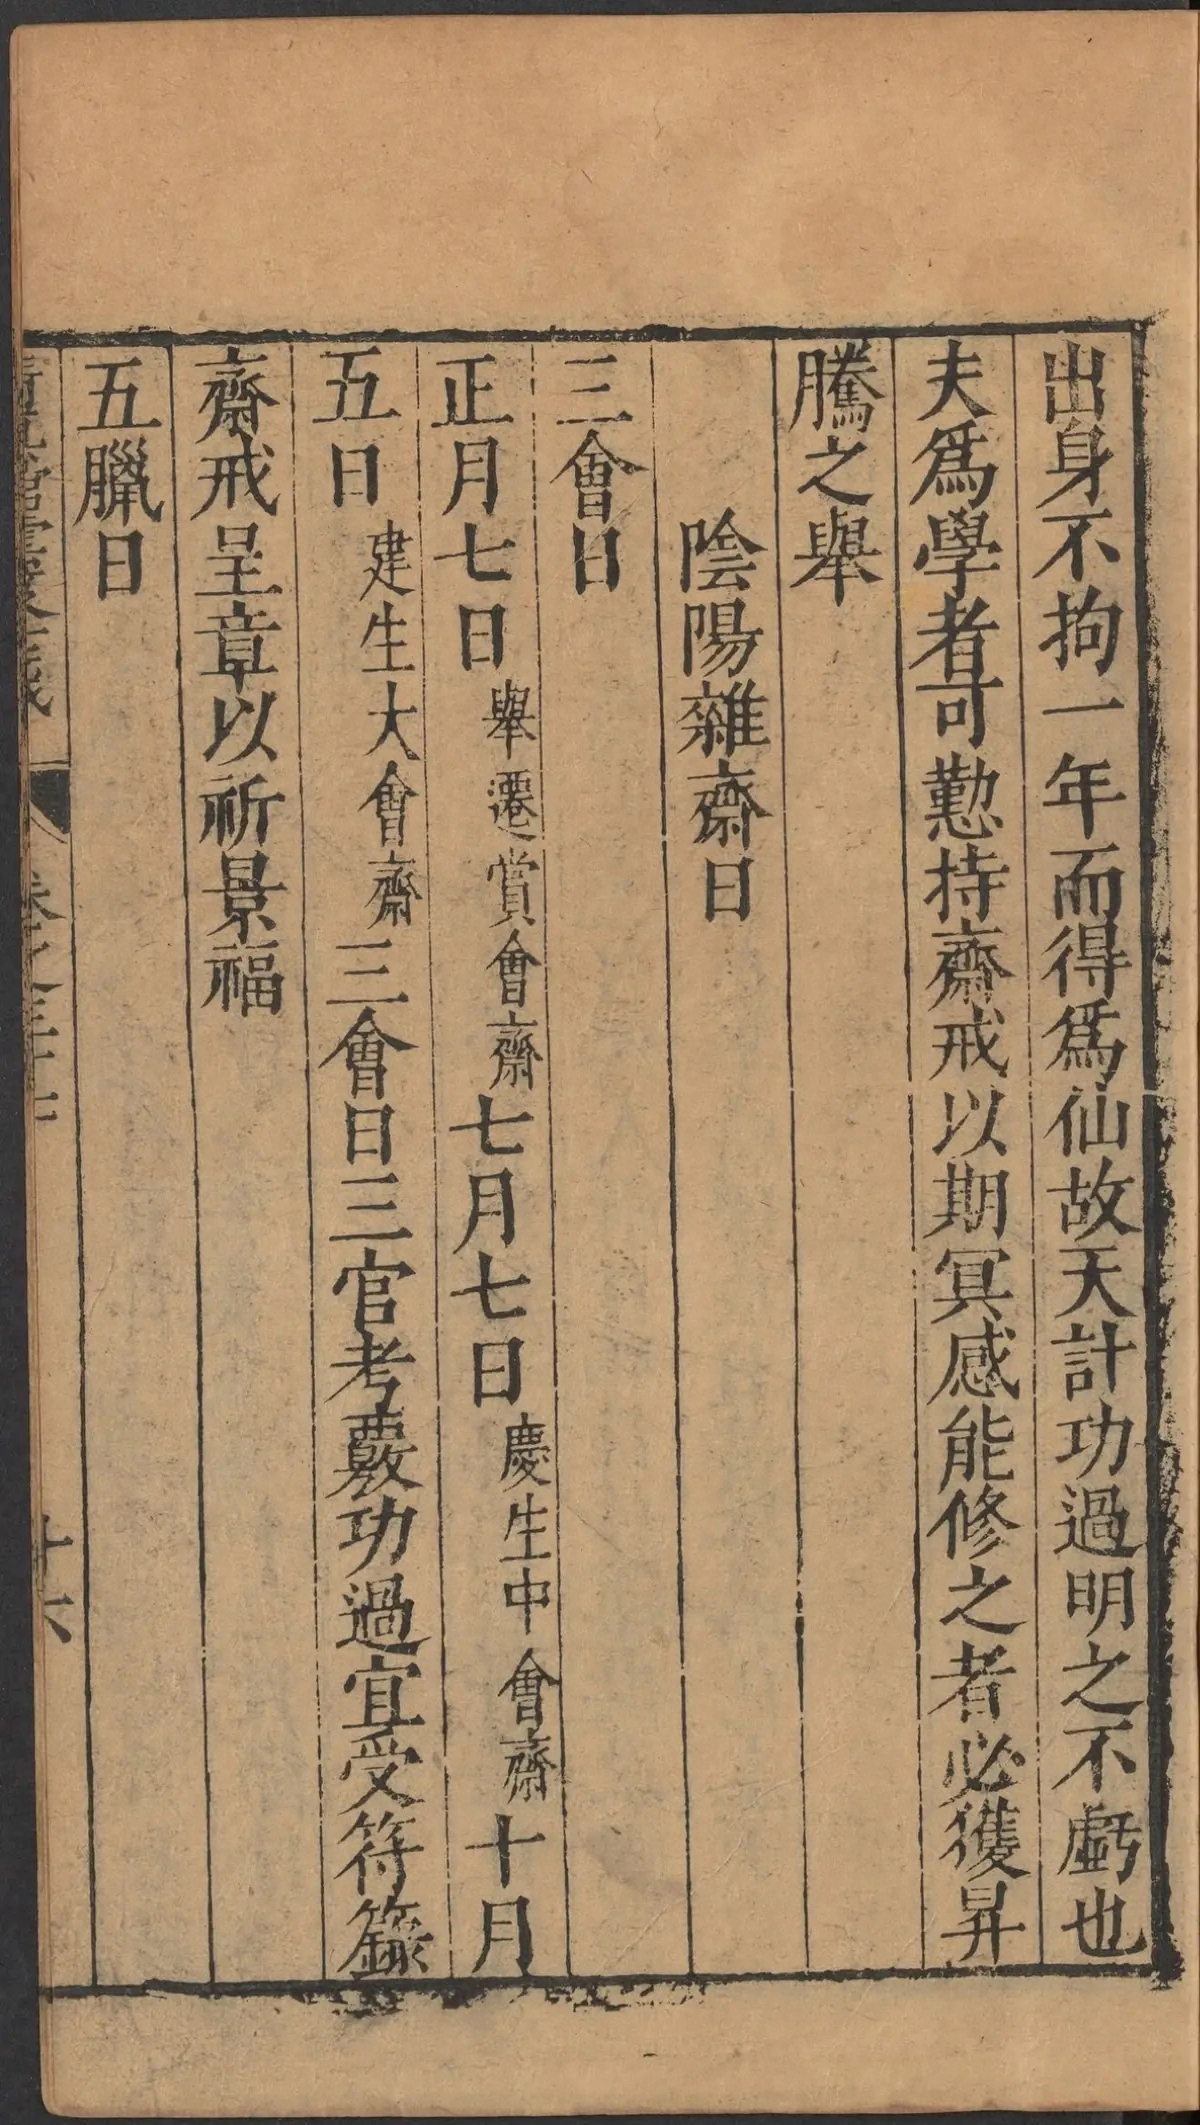 出身不拘一年而得爲仙故天計功過明之不虧也
夫爲學者可懃持齋戒以期冥感能修之者必獲昇
騰之舉
陰陽雜齋日
三會日
正月七日舉遷賞會齋七月七日慶生中會齋十月
五日建生大會齋三會日三官考覈功過宜受符籙
齋戒呈章以祈景福
五臘日
十六